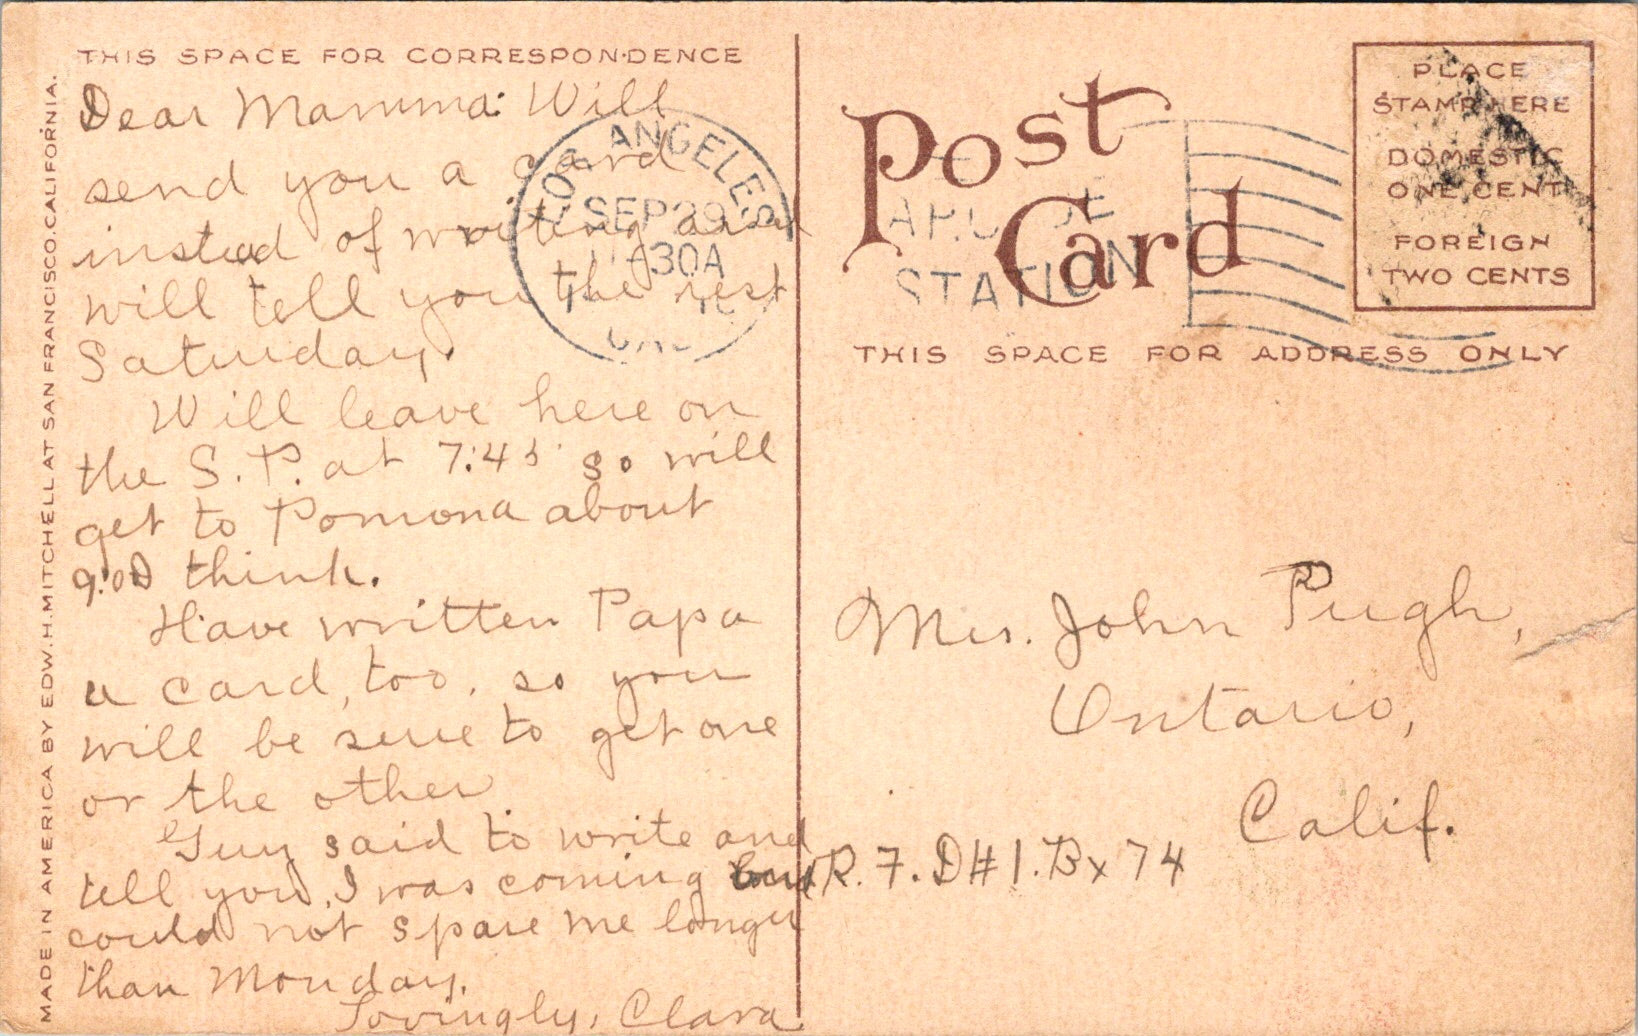 THIS SPACE FOR CORRESPONDENCE
Dear Mamma: Will
send you a card
instead of writing and
will tell you the rest
Saturday.
Will leave here on
the S.P. at 7:45 so will
get to Pomona about
9:00 think.
Have written Papa
a card, too, so you
will be sure to get one
or the other
Guy said to write and
tell you I was coming but
could not spare me longer
than Monday.
Lovingly, Clara
MADE IN AMERICA BY EDW. H. MITCHELL AT SAN FRANCISCO. CALIFORNIA.
LOS ANGELES
SEP 29
30A
CAL
STATION
Post
Card
PLACE
STAMP HERE
DOMESTIC
ONE CENT
FOREIGN
TWO CENTS
THIS SPACE FOR ADDRESS ONLY
Mrs. John Pugh,
Ontario,
Calif.
R. F. D # 1. Bx 74